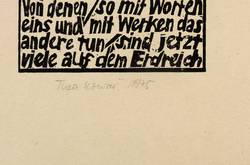 Von denen/so mit Worten
eins und/mit Werken das
andere tun/sind jetzt
viele auf dem Erdreich
1975